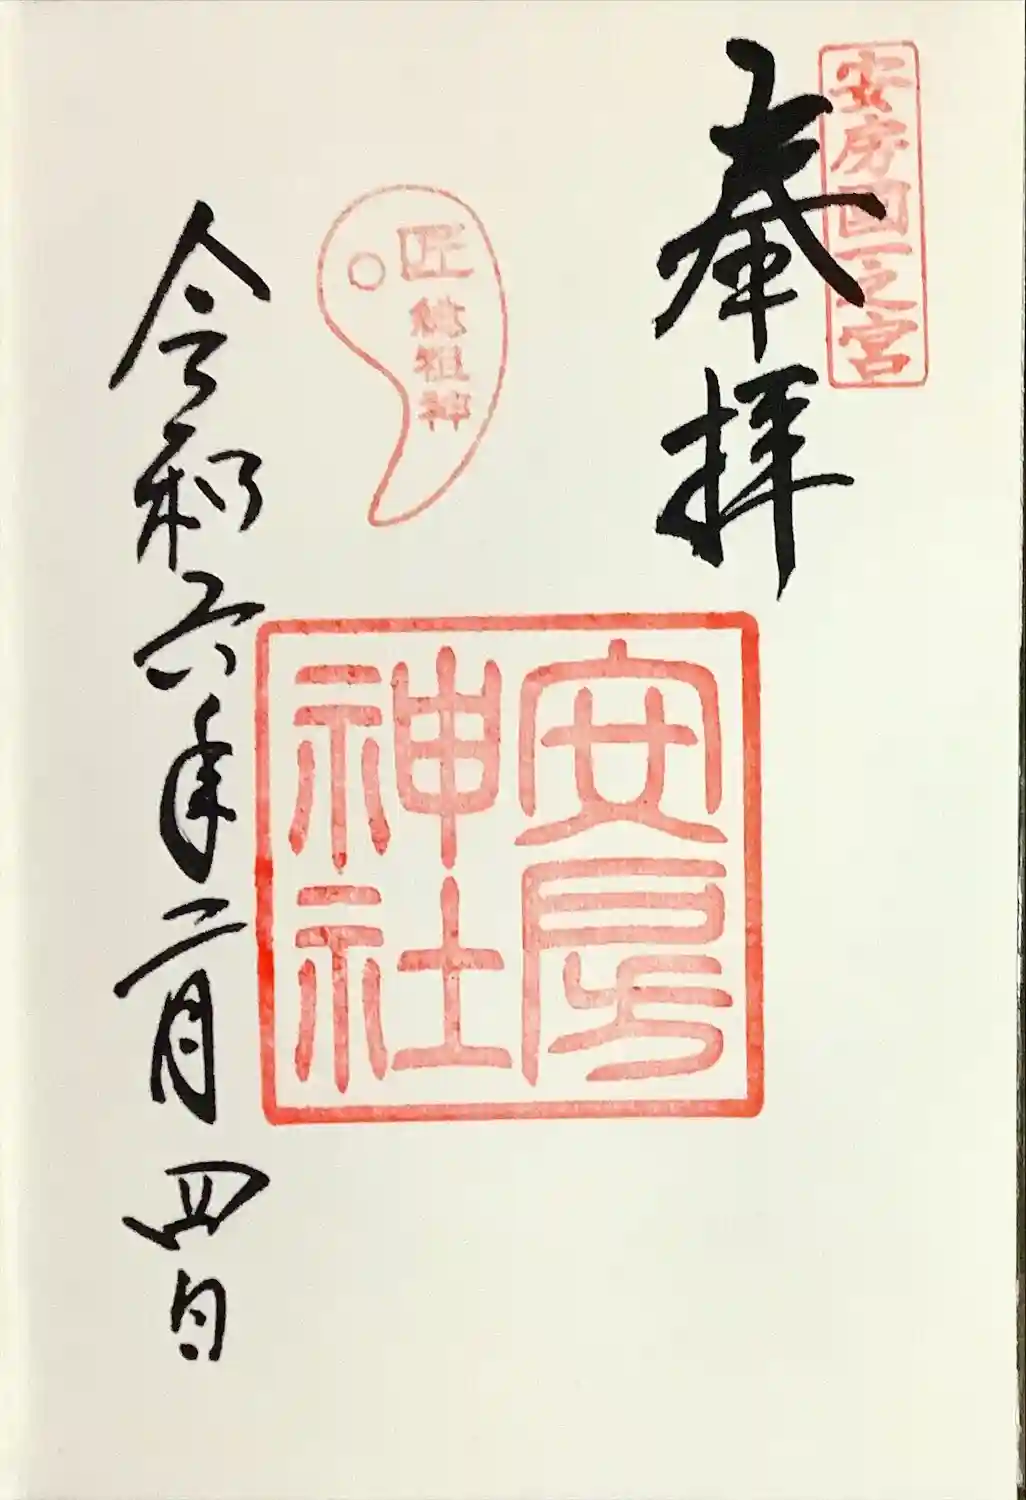 安房國一之宮
奉拝
匠
総祖神
安房
神社
令和六年二月四日